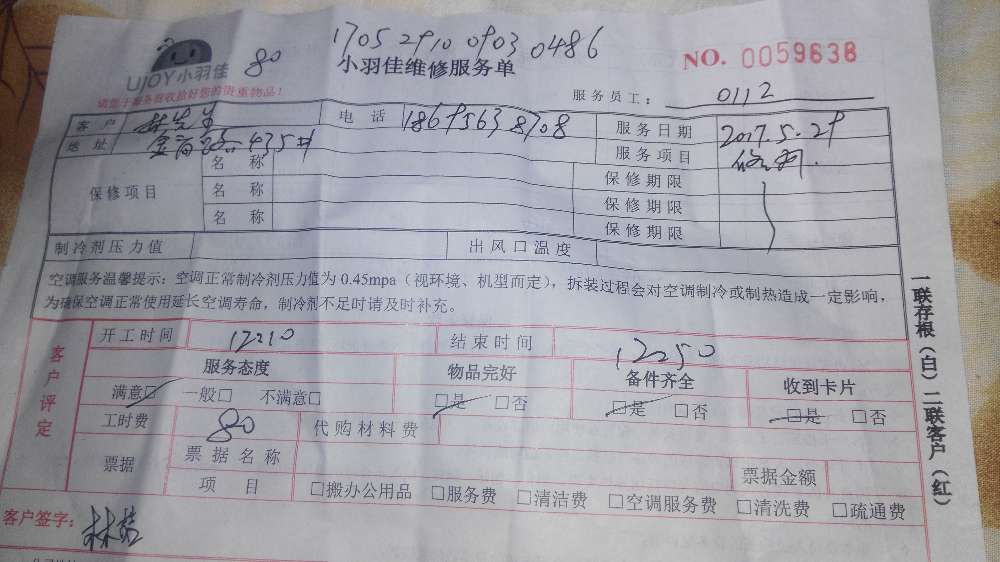 1705 2910 0903 0486
UJOY小羽佳 80 小羽佳维修服务单 NO. 0059638
请您于服务前收拾好您的贵重物品！ 服务员工： 0112
客户 林先生 电话 18695638708 服务日期 2017.5.29
地址 435# 服务项目
保修项目 名称 保修期限
名称 保修期限
名称 保修期限
制冷剂压力值 出风口温度
空调服务温馨提示：空调正常制冷剂压力值为 0.45mpa（视环境、机型而定），拆装过程会对空调制冷或制热造成一定影响，
为确保空调正常使用延长空调寿命，制冷剂不足时请及时补充。
客户评定 开工时间 12:10 结束时间 12:50
服务态度 物品完好 备件齐全 收到卡片
满意□ 一般□ 不满意□ □是 □否 □是 □否 □是 □否
工时费 80 代购材料费
票据 票据名称 票据金额
项目 □搬办公用品 □服务费 □清洁费 □空调服务费 □清洗费 □疏通费
客户签字：
一联存根（白）二联客户（红）